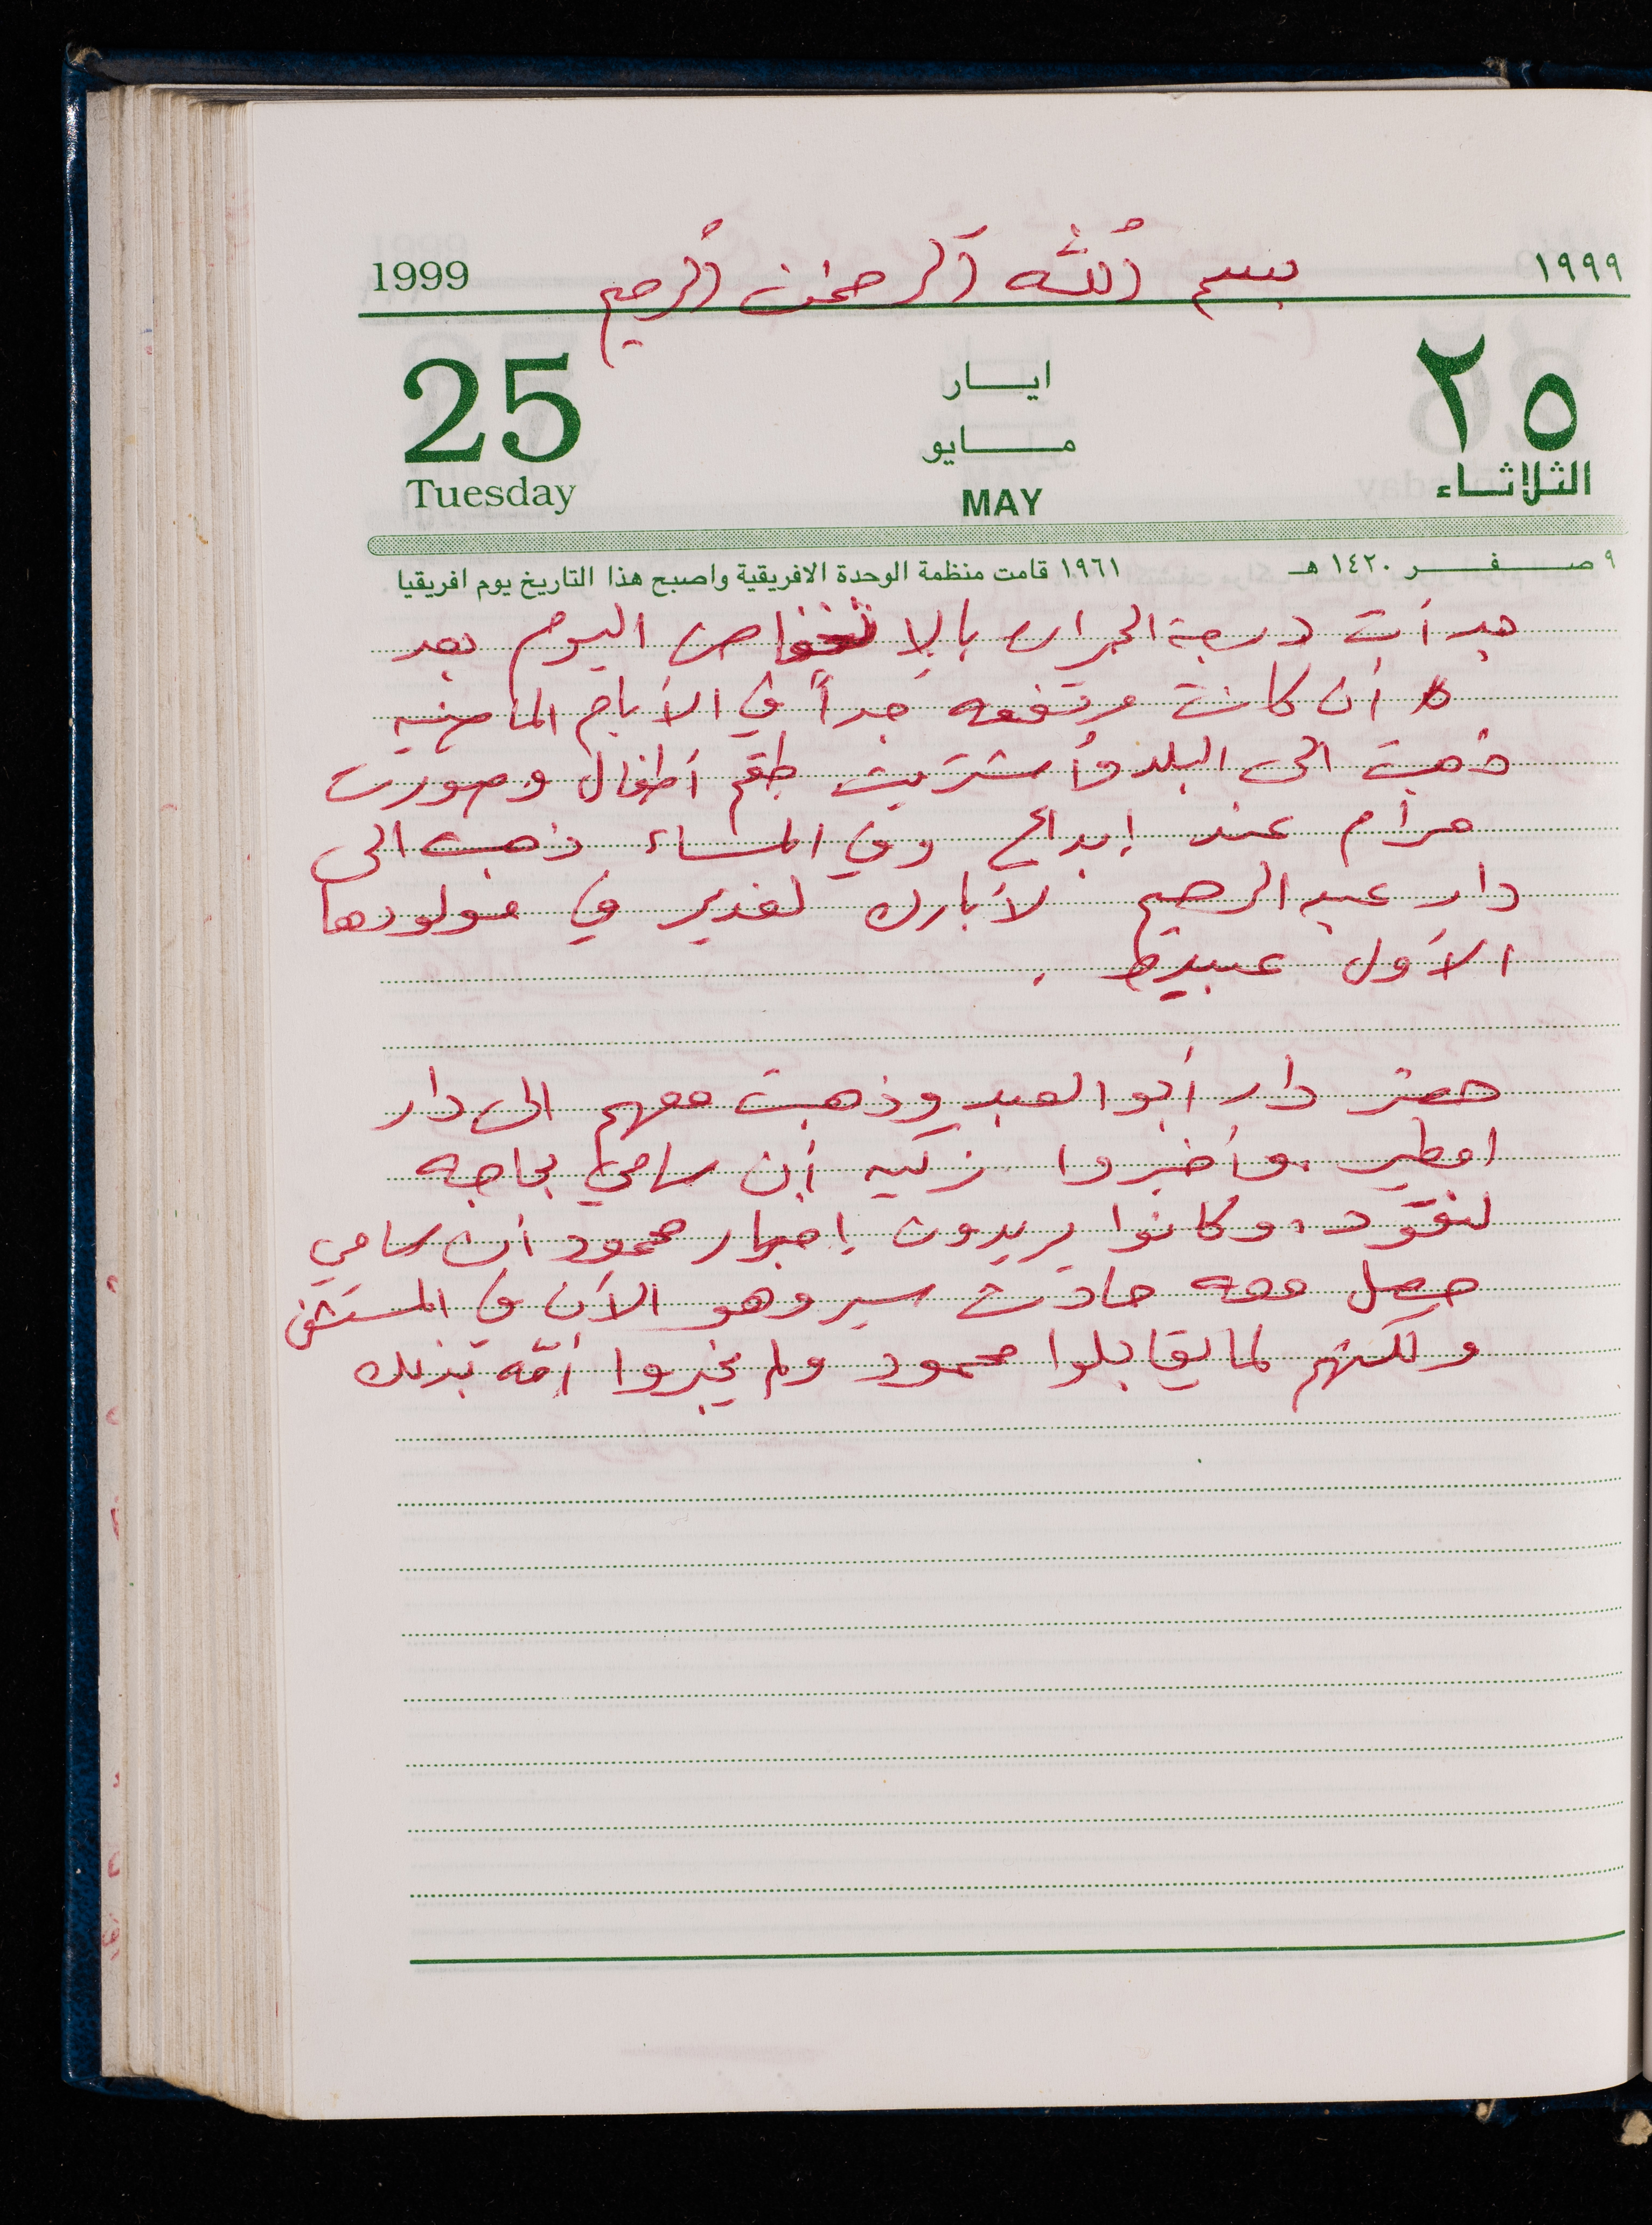 بسم الله الرحمن الرحيم
1999 ١٩٩٩
25 ايــار ٢٥
مــايو
Tuesday MAY الثلاثاء
٩ صفر ١٤٢٠هـ ١٩٦١ قامت منظمة الوحدة الافريقية واصبح هذا التاريخ يوم افريقيا
بدأت درجة الحرارة بالإنخفاض اليوم بعد
أن كانت مرتفعه جداً في الأيام الماضيه
ذهبت الى البلد وأشتريت طقم أطفال وصورت
مرام عند إبداع وفي المساء ذهبت الى
دار عبد الرحيم لأبارك لغدير في مولودها
الأول عبيدة .
حضر دار أبو العبد وذهبت معهم الى دار
امطير ، وأخبروا زكيه أن سامي بحاجه
لنقود ، وكانوا يريدون إخبار محمود أن سامي
حصل معه حادث سير وهو الآن في المستشفى
ولكنهم لم يقابلوا محمود ولم يخبروا أمّه بذلك